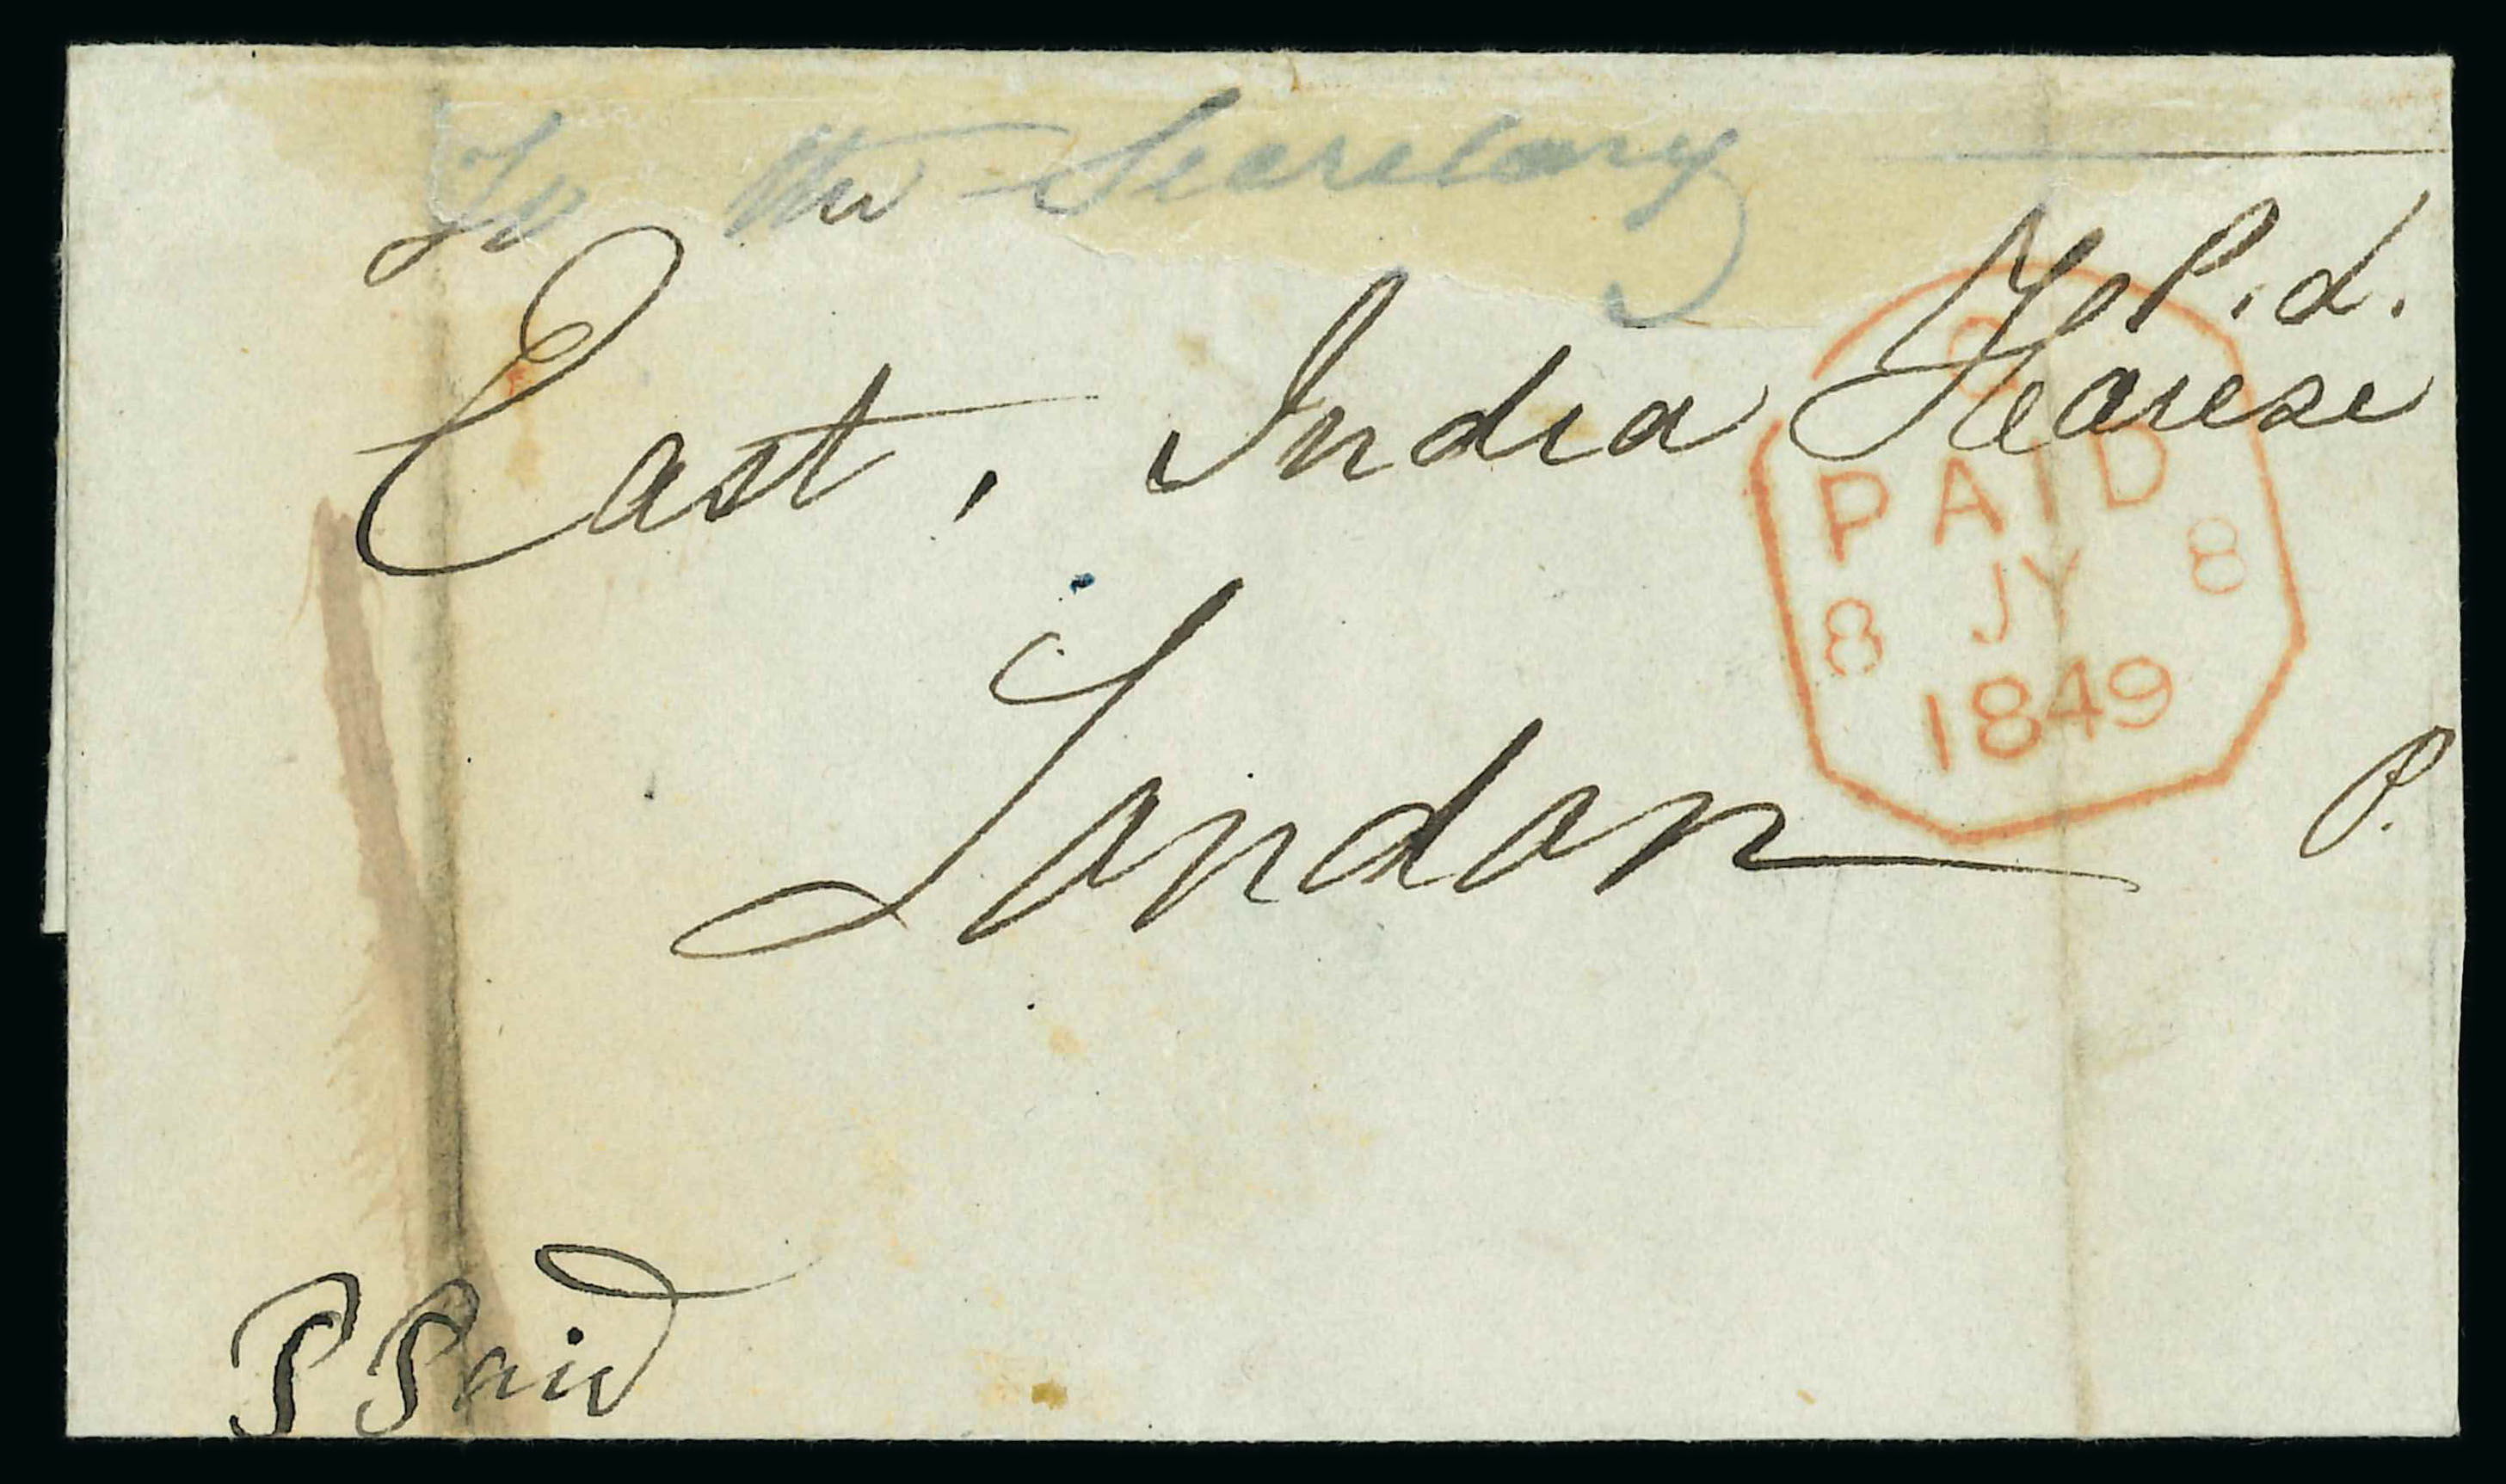 To the Secretary
P. L.
East, India House
London
P.
P Paid
PAID
8 JY 8
1849